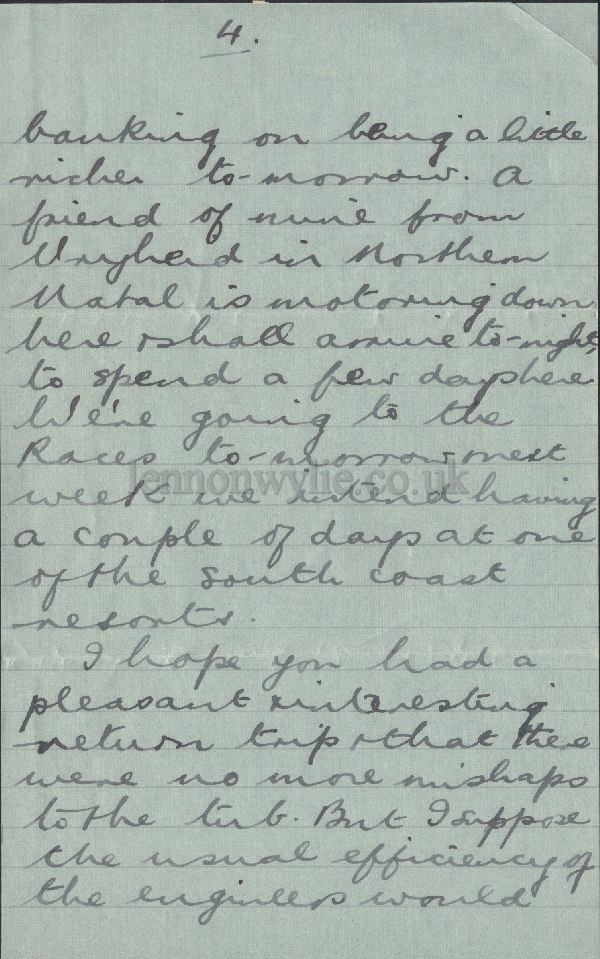 4.
banking on being a little
richer to-morrow. A
friend of mine from
Vryheid in Northern
Natal is motoring down
here & shall arrive to-night,
to spend a few days here.
We're going to the
Races to-morrow & next
week we intend having
a couple of days at one
of the south coast
resorts.
I hope you had a
pleasant & interesting
return trip & that there
were no more mishaps
to the tub. But I suppose
the usual efficiency of
the engineers would
lennonwylie.co.uk